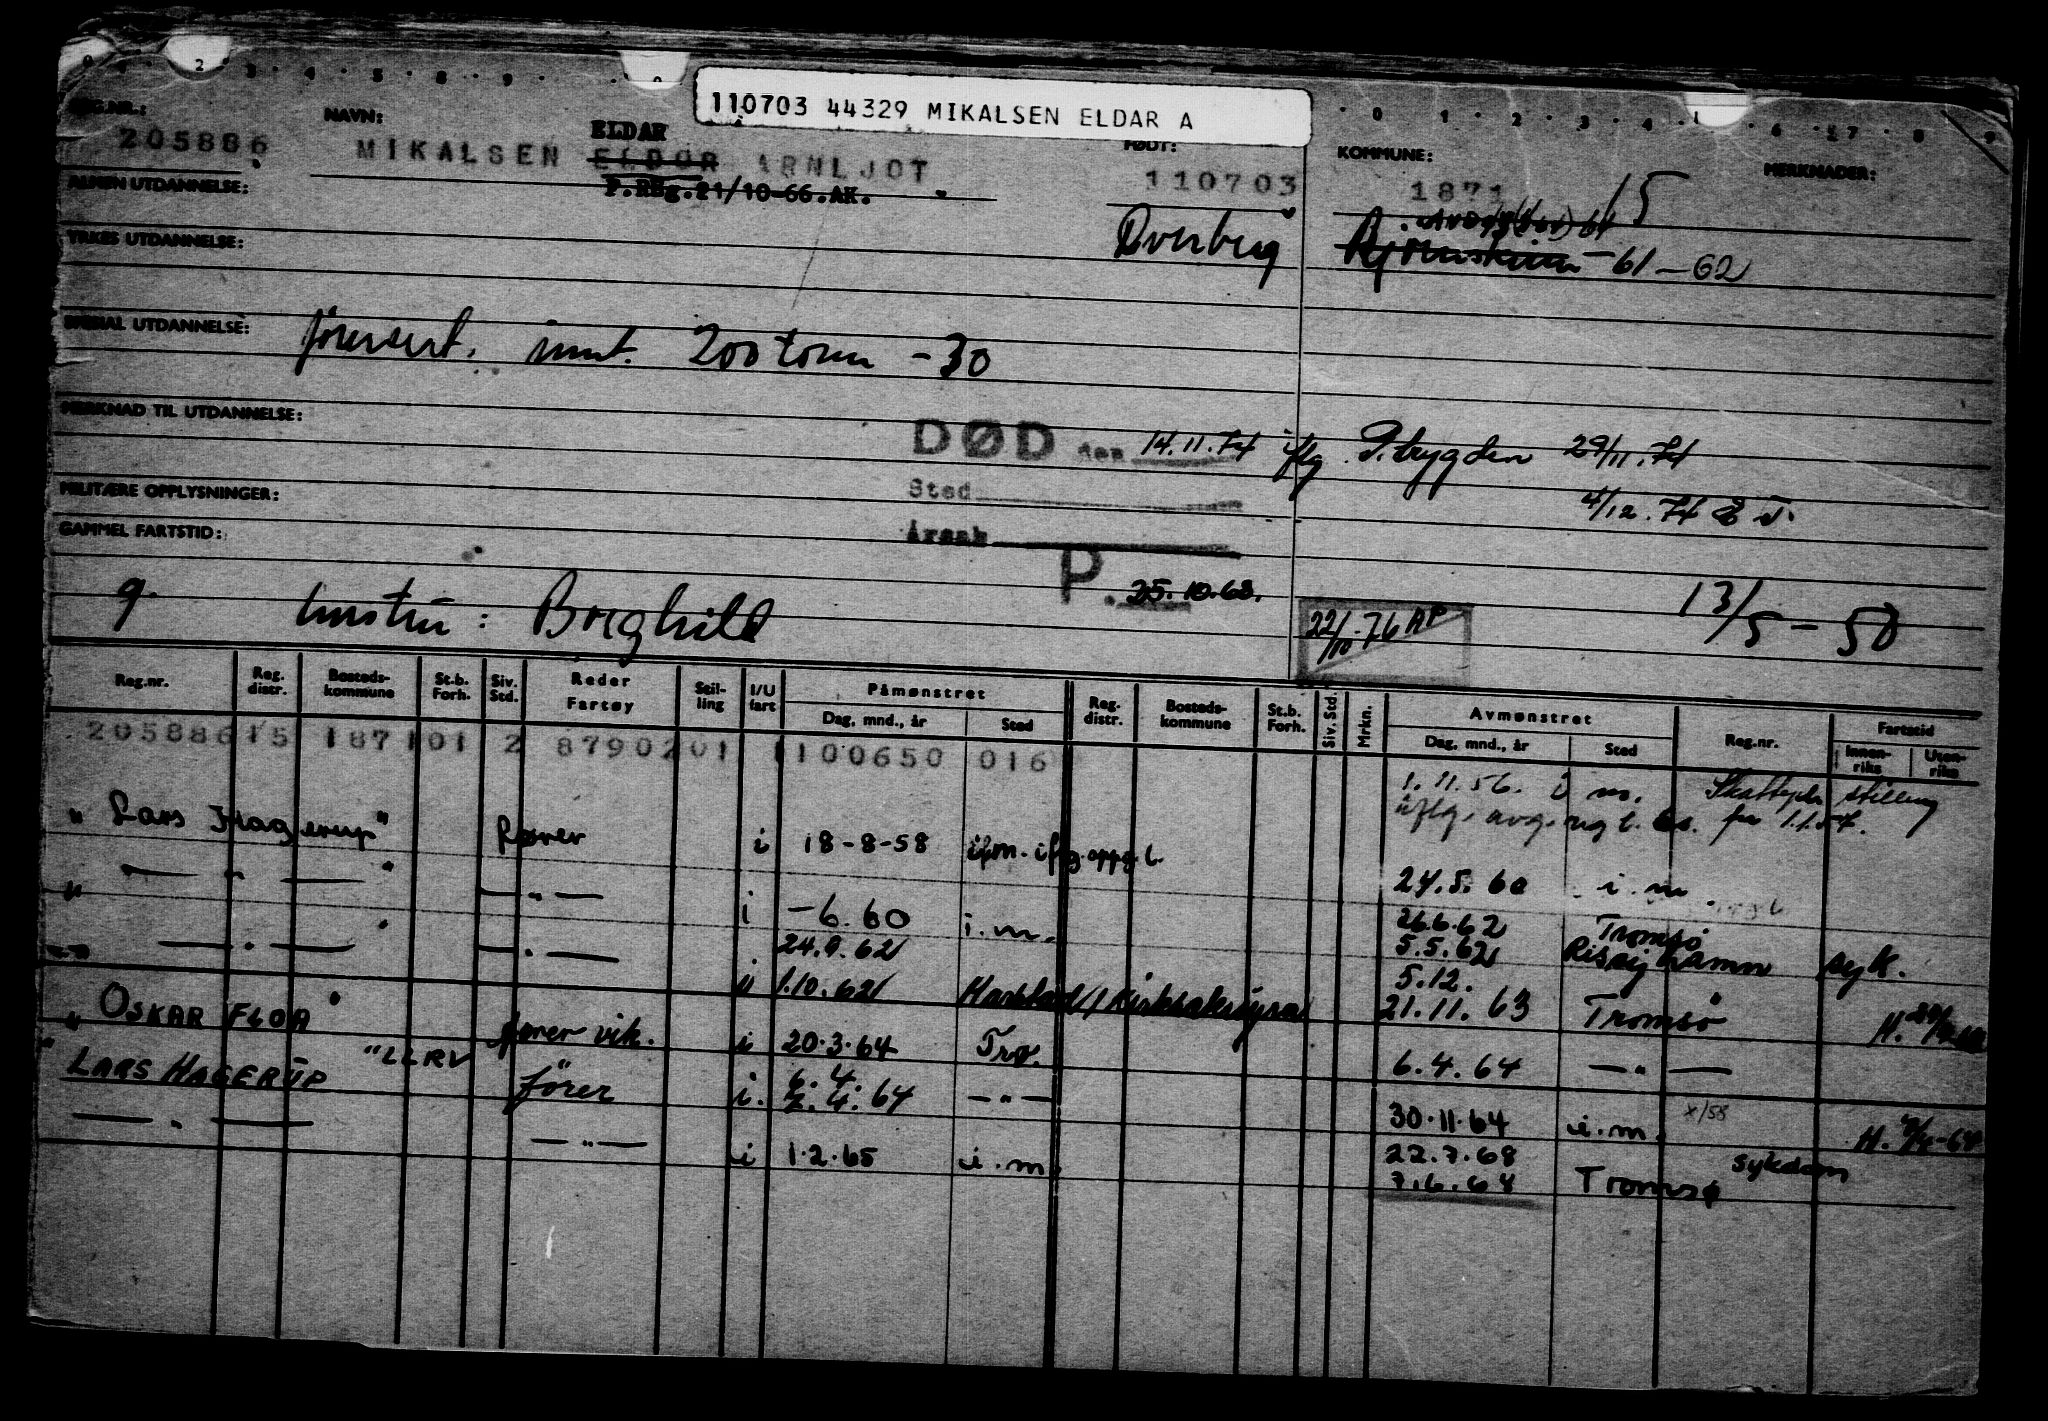 110703 44329 MIKALSEN ELDAR A
REG.NR.: NAVN: FØDT: KOMMUNE: MERKNADER:
ELDAR
205886 MIKALSEN ELDOR ARNLJOT 110703 1871 15
P.Reg.21/10-66.AK.
ALMEN UTDANNELSE:
Dverberg -61-62
YRKES UTDANNELSE:
SPESIAL UTDANNELSE: førersert. innt. 200 tonn -30
MERKNAD TIL UTDANNELSE:
DØD den 14.11.74 iflg P.trygden 29/11.74
MILITÆRE OPPLYSNINGER: Sted 4/12.74
GAMMEL FARTSTID: Årsak
P. 25.10.68.
g. hustru: Borghild 22/10-76 AP 13/5-50
Reg.nr. Reg. distr. Bosteds-kommune St.b. Forh. Siv. Std. Reder Fartøy Stil-ling I/U fart Påmønstret Dag, mnd., år Sted Reg. distr. Bosteds-kommune St.b. Forh. Siv. Std. Mrkn. Avmønstret Dag, mnd., år Sted Reg.nr. Fartstid Innen-riks Uten-riks
205886 15 1871 01 2 8790201 1 100650 016
1.11.56. i m. stilling
iflg. fra 1.1.57.
" Lars Hagerup " fører i 18-8-58 ifm. iflg. oppg. l.
24.5.60 i.m.
" — " — " — " — i -6.60 i.m. 26.6.62 Tromsø
24.9.62 5.5.62 Risøyhamn syk.
— " — — " — u 1.10.62 Harstad/ 5.12.
21.11.63 Tromsø
" OSKAR FLOA " fører vik. i 20.3.64 Trø. 6.4.64 — " —
" LARS HAGERUP " LLRV fører i. 6.4.
2.4.64 — " — 30.11.64 i.m. x/55
— " — — " — i 1.2.65 i.m. 22.7.68 sykdom
7.6.68 Tromsø